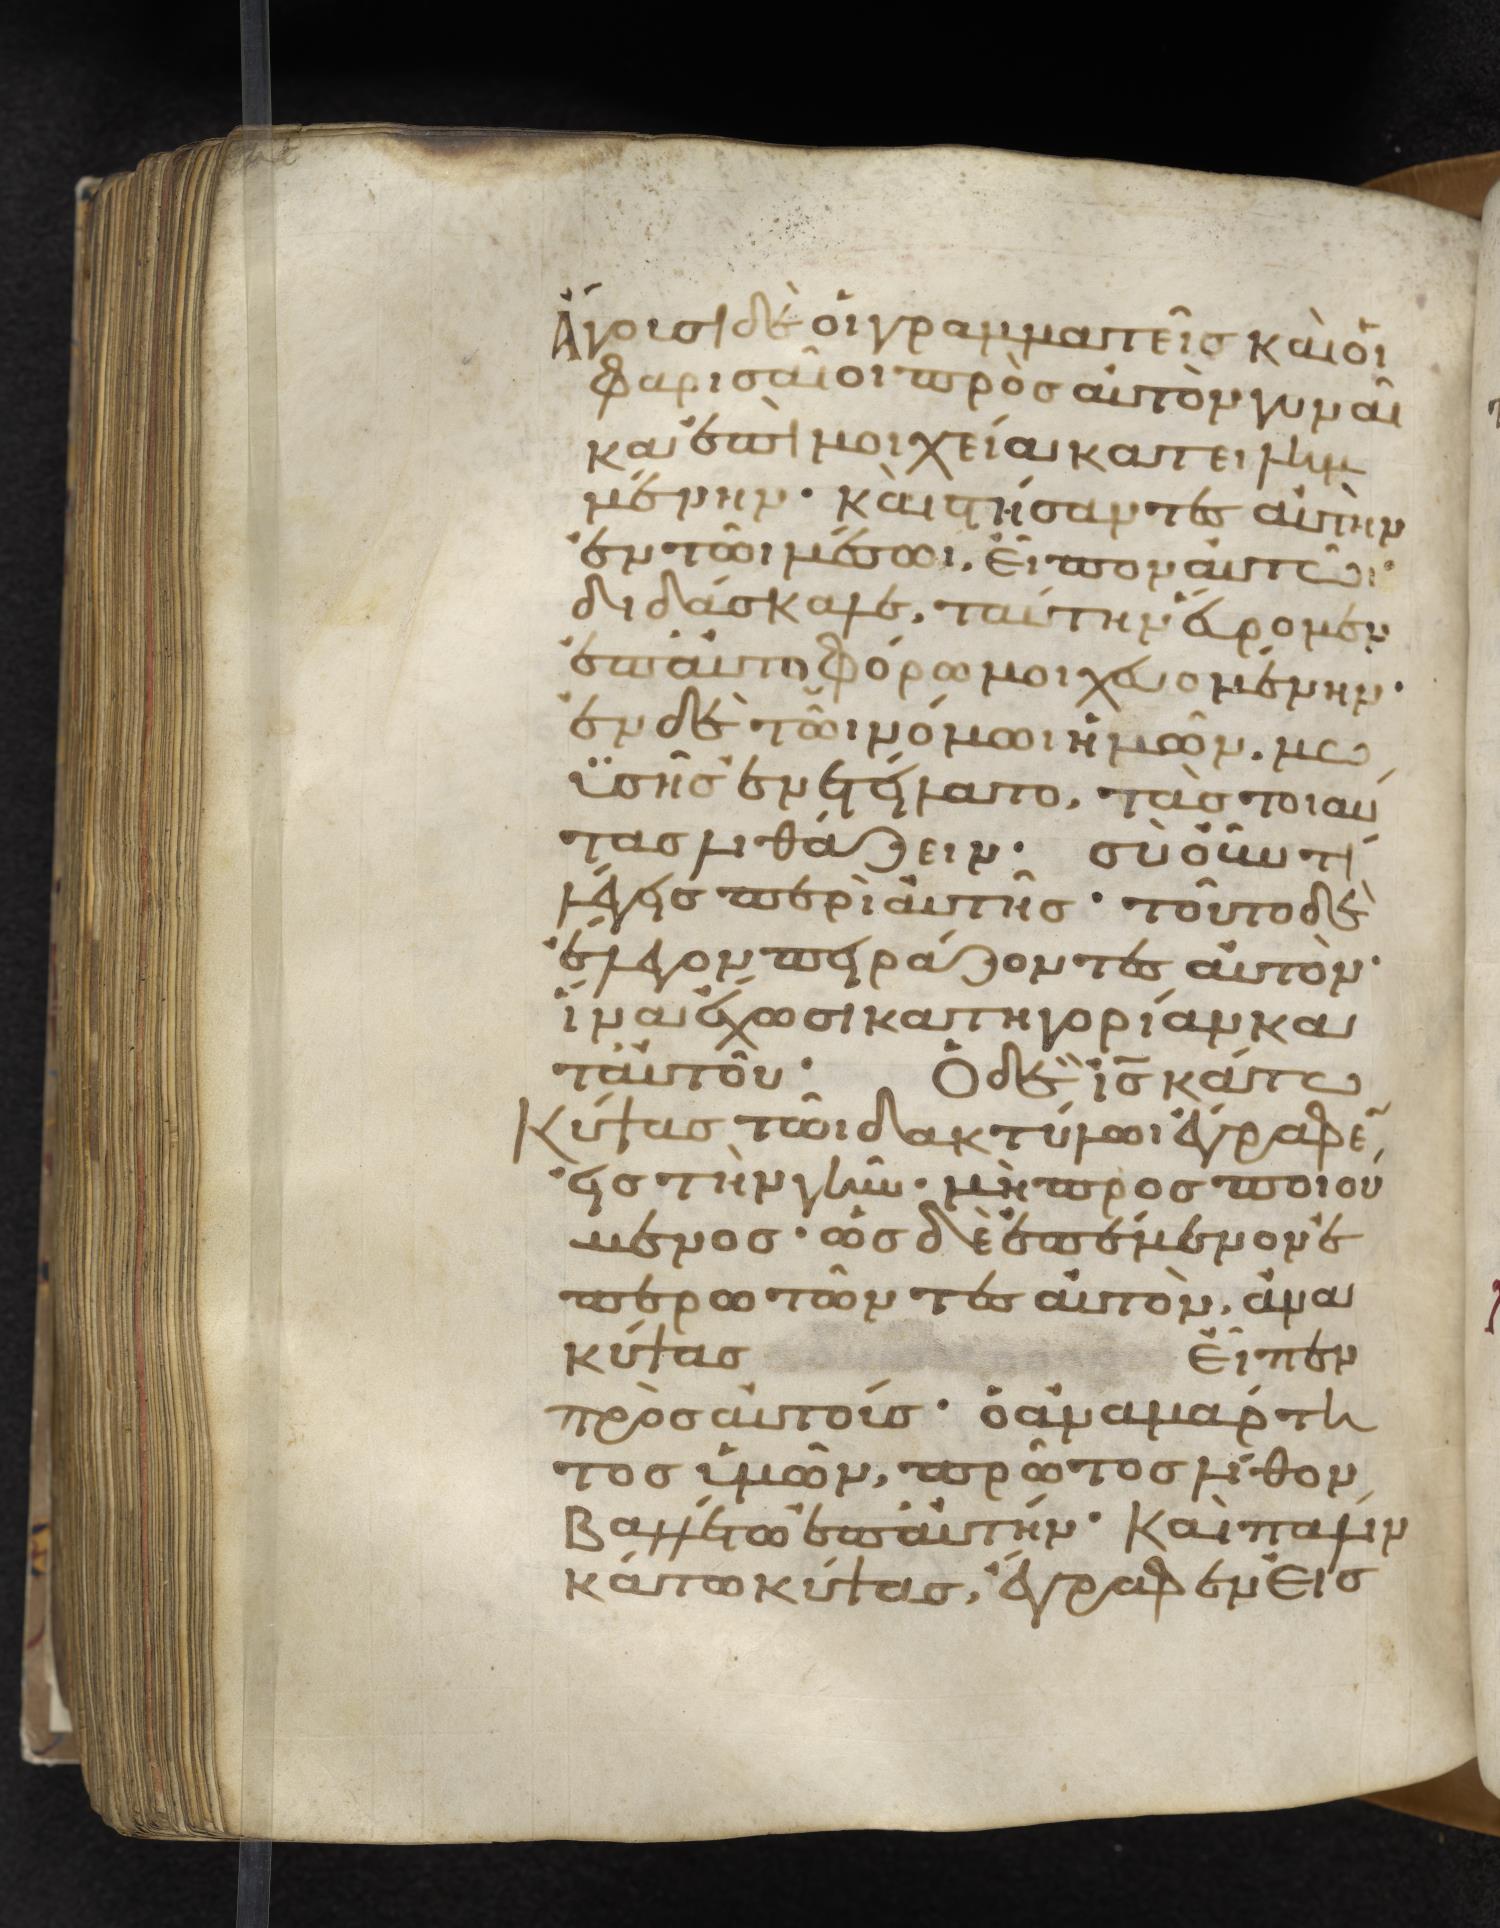 Ἄγουσι δὲ οἱ γραμματεῖς καὶ οἱ
φαρισαῖοι πρὸς αὐτὸν γυναῖ
κα ἐπὶ μοιχεία κατειλημ
μένην· καὶ στήσαντες αὐτὴν
ἐν τῶι μέσωι, εἶπον αὐτῶι·
διδάσκαλε, ταύτην εὕρομεν
ἐπαυτοφόρω μοιχευομένην·
ἐν δὲ τῶι νόμωι ἡμῶν, μω
ϋσῆς ἐνετείλατο, τὰς τοιαύ
τας λιθάζειν· σὺ οὖν τί
λέγεις περὶ αὐτῆς· τοῦτο δὲ
ἔλεγον πειράζοντες αὐτὸν·
ἵνα ἔχωσι κατηγορίαν κα
τ' αὐτοῦ· Ὁ δὲ ις κάτω
κύψας τῶι δακτύλωι ἔγραφε
εἰς τὴν γῆν· μὴ προσποιού
μενος· ὡς δὲ ἐπέμενον ἐ
περωτῶντες αὐτὸν, ἀνα
κύψας εἶπεν
πρὸς αὐτούς· ὁ ἀναμάρτη
τος ὑμῶν, πρῶτος λίθον
βαλλέτω ἐπ' αὐτήν· Καὶ πάλιν
κάτω κύψας, ἔγραφεν εἰς